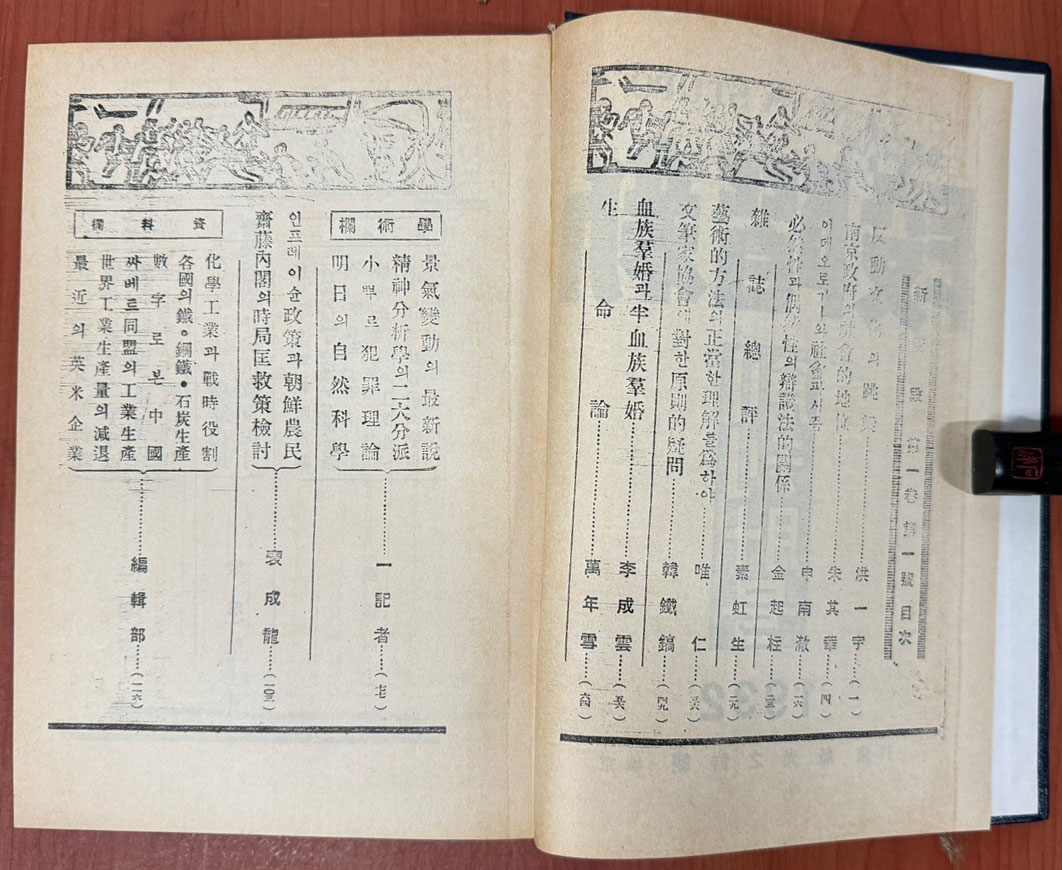 新階段 第一卷 第一號 目次
反動文學의 跳梁 洪一宇 (一)
南京政府의 社會的地位 朱其華 (四)
이데오로기—와 社會교사주 申南澈 (一六)
必然性과 偶然性의 辯證法的關係 金起柱 (二三)
雜誌總評 素虹生 (二九)
藝術的方法의 正當한 理解를 爲하야 唯仁
文筆家協會에 對한 原則的疑問 韓鐵鎬 (四九)
血族羣婚과 半血族羣婚 李成雲 (五六)
生命論 萬年雪 (六四)
學術欄
景氣變動의 最新說
精神分析學의 二大分派
小뿌르 犯罪理論
明日의 自然科學
一記者 (七七)
인프레이슌政策과 朝鮮農民
齋藤內閣의 時局匡救策檢討
裵成龍 (一〇三)
資料欄
化學工業과 戰時役割
各國의 鐵•鋼鐵•石炭生產
數字로 본 中國
싸베트同盟의 工業生產
世界工業生產量의 減退
最近의 英米企業
編輯部 (一二六)